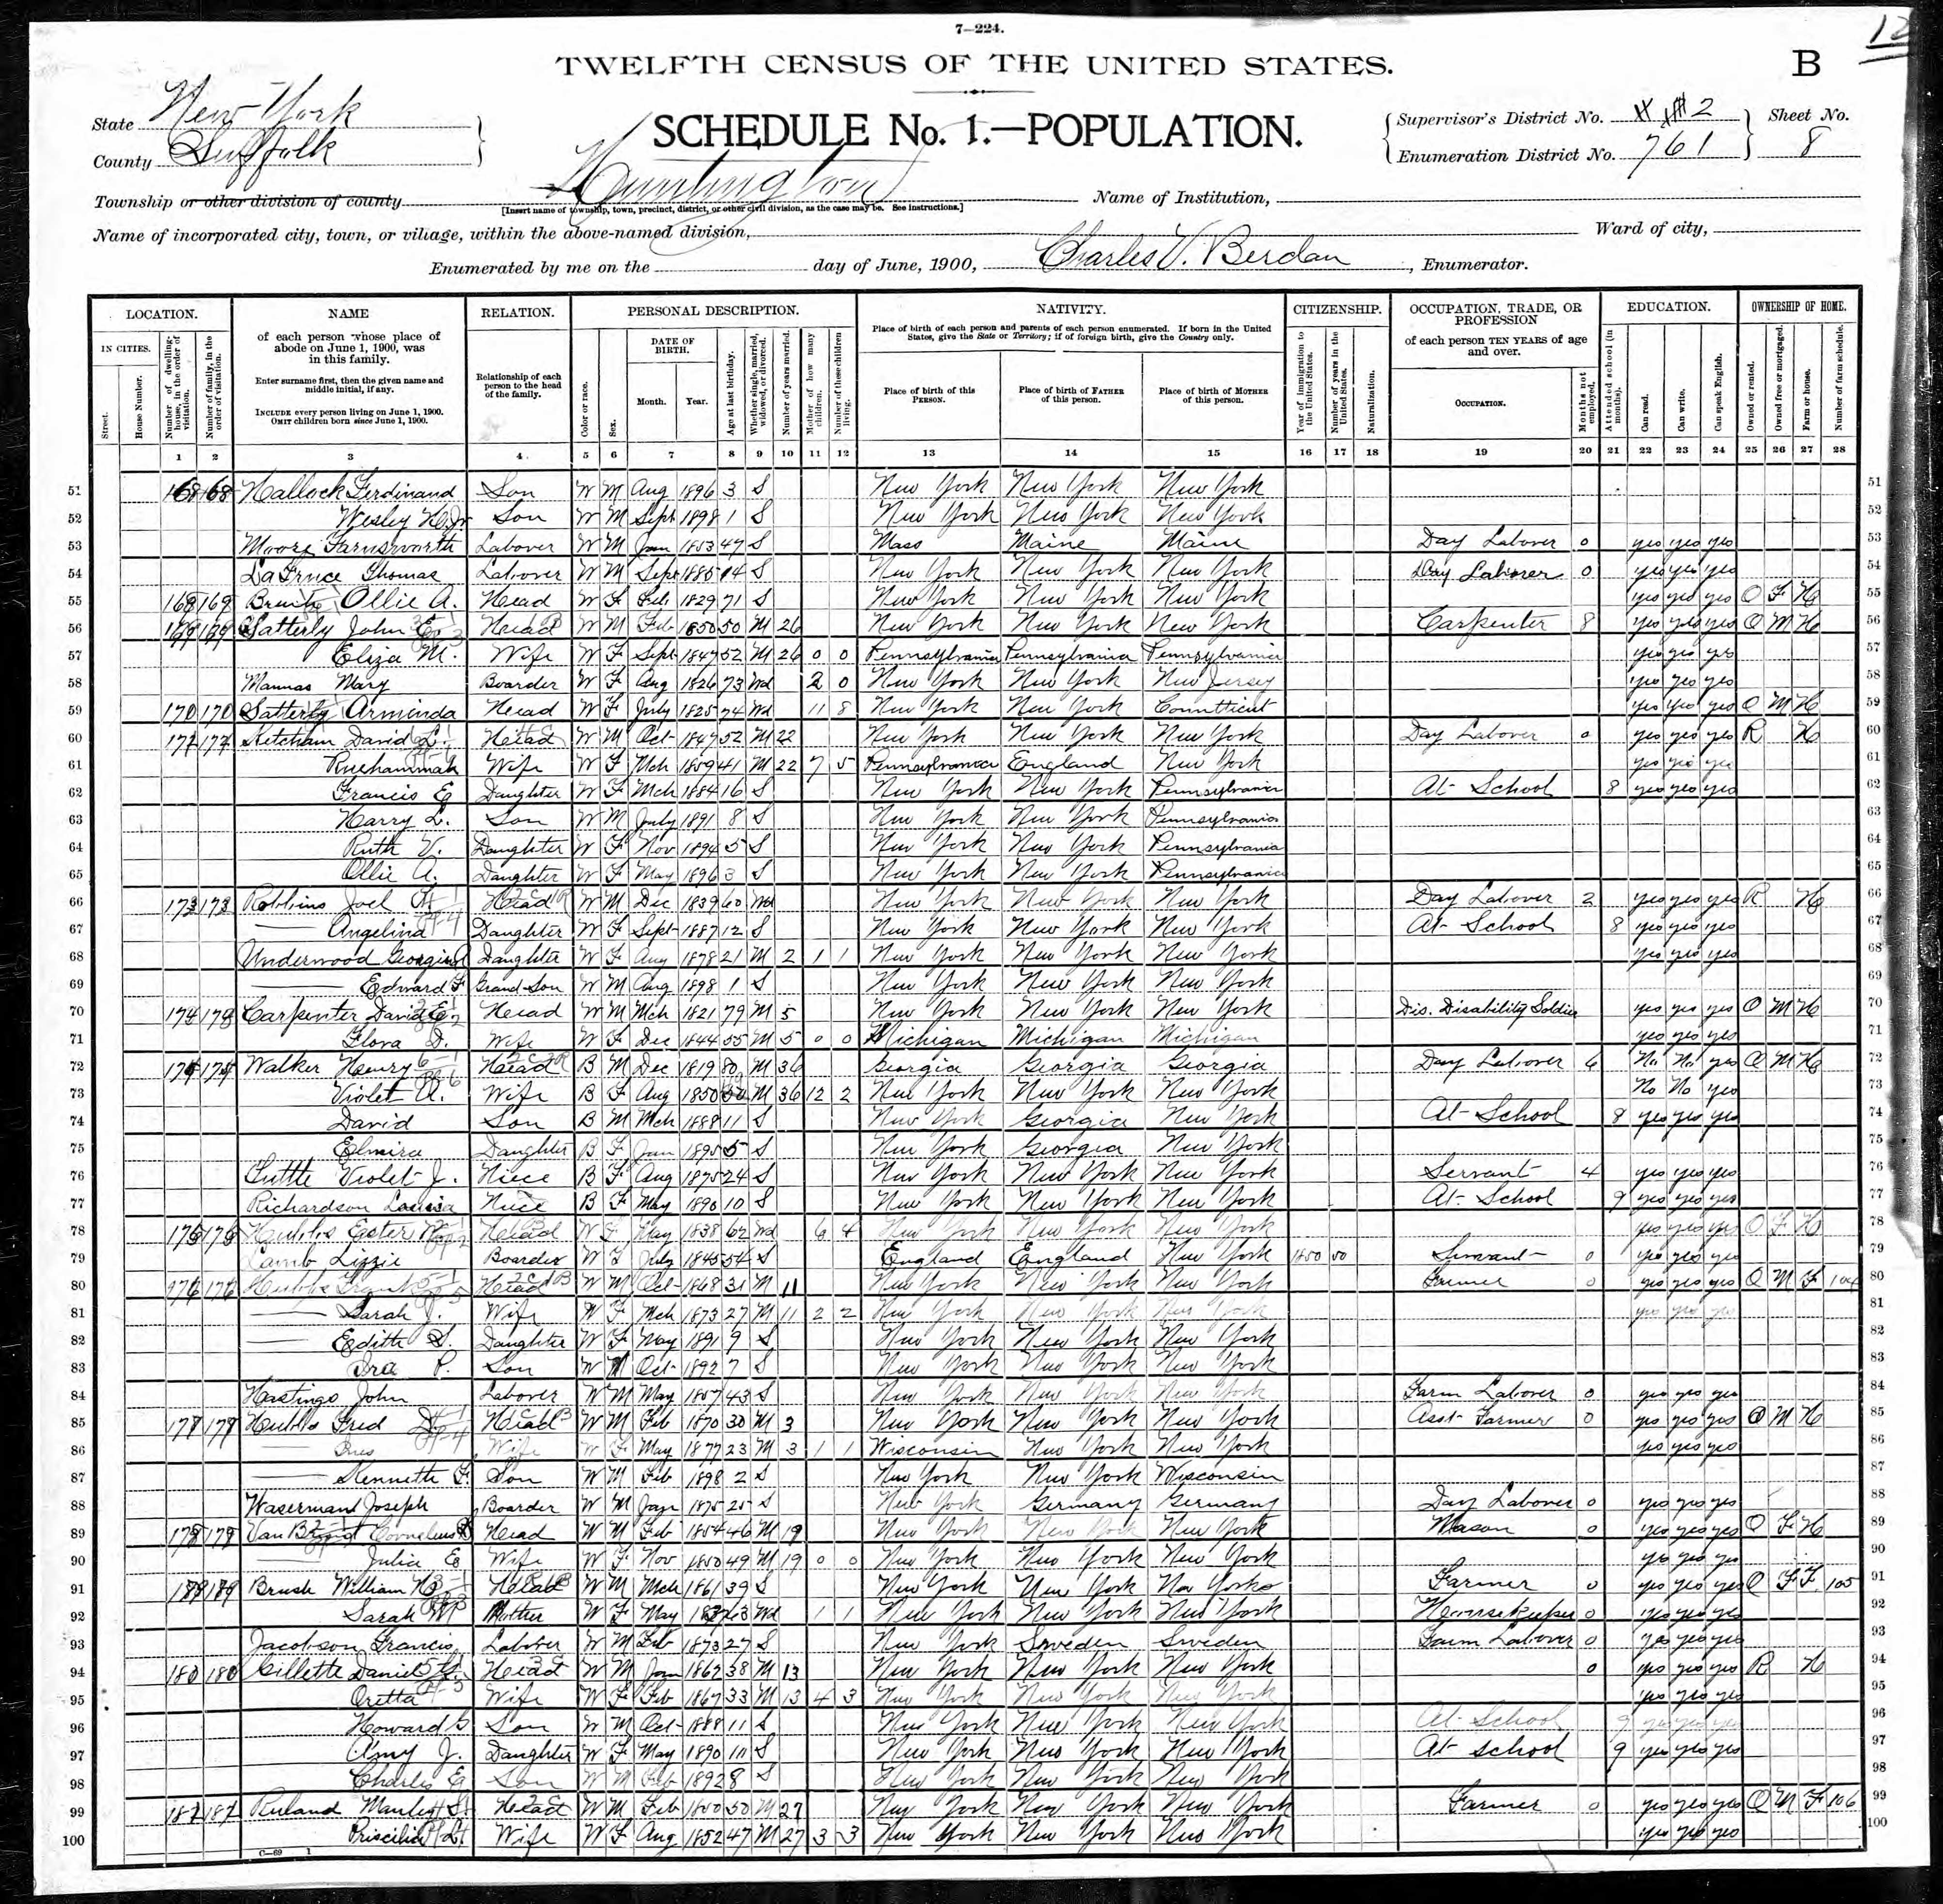 7—224.
12
TWELFTH CENSUS OF THE UNITED STATES.
B
State New York
County Suffolk
SCHEDULE No. 1.—POPULATION.
Supervisor's District No. 2
Enumeration District No. 761
Sheet No. 8
Township or other division of county Huntington
[Insert name of township, town, precinct, district, or other civil division, as the case may be. See instructions.]
Name of Institution,
Name of incorporated city, town, or village, within the above-named division,
Ward of city,
Enumerated by me on the day of June, 1900, Charles V. Berdan, Enumerator.
LOCATION. NAME RELATION. PERSONAL DESCRIPTION. NATIVITY. CITIZENSHIP. OCCUPATION, TRADE, OR PROFESSION EDUCATION. OWNERSHIP OF HOME.
IN CITIES.
Street.
House Number.
Number of dwelling-house, in the order of visitation.
Number of family, in the order of visitation.
of each person whose place of abode on June 1, 1900, was in this family.
Enter surname first, then the given name and middle initial, if any.
INCLUDE every person living on June 1, 1900. OMIT children born since June 1, 1900.
Relationship of each person to the head of the family.
Color or race.
Sex.
DATE OF BIRTH.
Month. Year.
Age at last birthday.
Whether single, married, widowed, or divorced.
Number of years married.
Mother of how many children.
Number of these children living.
Place of birth of each person and parents of each person enumerated. If born in the United States, give the State or Territory; if of foreign birth, give the Country only.
Place of birth of this PERSON.
Place of birth of FATHER of this person.
Place of birth of MOTHER of this person.
Year of immigration to the United States.
Number of years in the United States.
Naturalization.
of each person TEN YEARS of age and over.
OCCUPATION.
Months not employed.
Attended school (in months).
Can read.
Can write.
Can speak English.
Owned or rented.
Owned free or mortgaged.
Farm or house.
Number of farm schedule.
1 2 3 4 5 6 7 8 9 10 11 12 13 14 15 16 17 18 19 20 21 22 23 24 25 26 27 28
51 168 168 Hallock Ferdinand Son W M Aug 1896 3 S New York New York New York 51
52 Wesley H. Jr Son W M Sept 1898 1 S New York New York New York 52
53 Moore Farnsworth Laborer W M Jan 1853 47 S Mass Maine Maine Day Laborer 0 yes yes yes 53
54 Thomas Laborer W M Sept 1885 14 S New York New York New York Day Laborer 0 yes yes yes 54
55 169 169 Ollie A. Head W F Feb 1829 71 S New York New York New York yes yes yes O F H 55
56 Satterly John E. Head W M Feb 1850 50 M 26 New York New York New York Carpenter 8 yes yes yes O M H 56
57 Eliza M. Wife W F Sept 1847 52 M 26 0 0 Pennsylvania Pennsylvania Pennsylvania yes yes yes 57
58 Mannas Mary Boarder W F Aug 1826 73 Wd 2 0 New York New York New Jersey yes yes yes 58
59 170 170 Satterly Arminda Head W F July 1825 74 Wd 11 8 New York New York Conntticut yes yes yes O M H 59
60 Ketcham David L. Head W M Oct 1847 52 M 22 New York New York New York Day Laborer 0 yes yes yes R H 60
61 Ruehammah Wife W F Mch 1859 41 M 22 7 5 Pennsylvania England New York yes yes yes 61
62 Francis E Daughter W F Mch 1884 16 S New York New York Pennsylvania At School 8 yes yes yes 62
63 Harry L. Son W M July 1891 8 S New York New York Pennsylvania 63
64 Ruth V. Daughter W F Nov 1894 5 S New York New York Pennsylvania 64
65 Ollie A. Daughter W F May 1896 3 S New York New York Pennsylvania 65
66 173 173 Robbins Joel Head W M Dec 1839 60 Wd New York New York New York Day Laborer 2 yes yes yes R H 66
67 Angelina Daughter W F Sept 1887 12 S New York New York New York At School 8 yes yes yes 67
68 Underwood Georgina Daughter W F Aug 1878 21 M 2 1 1 New York New York New York yes yes yes 68
69 Edward F Grand Son W M Aug 1898 1 S New York New York New York 69
70 Carpenter David E. Head W M Mch 1821 79 M 5 New York New York New York Dis. Disability Soldier yes yes yes O M H 70
71 Flora D. Wife W F Dec 1844 55 M 5 0 0 Michigan Michigan Michigan yes yes yes 71
72 Walker Henry Head B M Dec 1819 80 M 36 Georgia Georgia Georgia Day Laborer 6 No No yes O M H 72
73 Violet A. Wife B F Aug 1850 M 36 12 2 New York New York New York No No yes 73
74 David Son B M Mch 1888 11 S New York Georgia New York At School 8 yes yes yes 74
75 Elmira Daughter B F Jan 1895 5 S New York Georgia New York 75
76 Violet J. Niece B F Aug 1875 24 S New York New York New York Servant 4 yes yes yes 76
77 Richardson Louisa Niece B F May 1890 10 S New York New York New York At School 9 yes yes yes 77
78 Hubbs Ester Head W F May 1838 62 Wd 6 4 New York New York New York yes yes yes O F H 78
79 Lamb Lizzie Boarder W F July 1845 54 S England England New York 1850 50 Servant 0 yes yes yes 79
80 176 176 Hubbs Frank Head W M Oct 1868 31 M 11 New York New York New York Farmer 0 yes yes yes O M F 104 80
81 Sarah J. Wife W F Mch 1873 27 M 11 2 2 New York New York New York yes yes yes 81
82 Edith S. Daughter W F May 1891 9 S New York New York New York 82
83 Ira P. Son W M Oct 1892 7 S New York New York New York 83
84 Hastings John Laborer W M May 1857 43 S New York New York New York Farm Laborer 0 yes yes yes 84
85 Hubbs Fred Head W M Feb 1870 30 M 3 New York New York New York Asst Farmer 0 yes yes yes O M H 85
86 Wife W F May 1877 23 M 3 1 1 Wisconsin New York New York yes yes yes 86
87 Kenneth F. Son W M Feb 1898 2 S New York New York Wisconsin 87
88 Waserman Joseph Boarder W M Jan 1875 25 S New York Germany Germany Day Laborer 0 yes yes yes 88
89 Van Cornelius Head W M Feb 1854 46 M 19 New York New York New York Mason 0 yes yes yes O F H 89
90 Julia E Wife W F Nov 1850 49 M 19 0 0 New York New York New York yes yes yes 90
91 Brush William H Head W M Mch 1861 39 S New York New York New York Farmer 0 yes yes yes O F F 105 91
92 Sarah Mother W F May Wd 1 1 New York New York New York Housekeeper 0 yes yes yes 92
93 Jacobson Francis Laborer W M Feb 1873 27 S New York Sweden Sweden Farm Laborer 0 yes yes yes 93
94 180 180 Gillette Daniel Head W M Jan 1862 38 M 13 New York New York New York 0 yes yes yes R H 94
95 Oretta Wife W F Feb 1867 33 M 13 4 3 New York New York New York yes yes yes 95
96 Howard G Son W M Oct 1888 11 S New York New York New York At School 9 yes yes yes 96
97 Amy J. Daughter W F May 1890 10 S New York New York New York At school 9 yes yes yes 97
98 Charles E Son W M Feb 1892 8 S New York New York New York 98
99 Ruland Manley S. Head W M Feb 1850 50 M 27 New York New York New York Farmer 0 yes yes yes O M F 106 99
100 Priscilla L Wife W F Aug 1852 47 M 27 3 3 New York New York New York yes yes yes 100
C—69 1